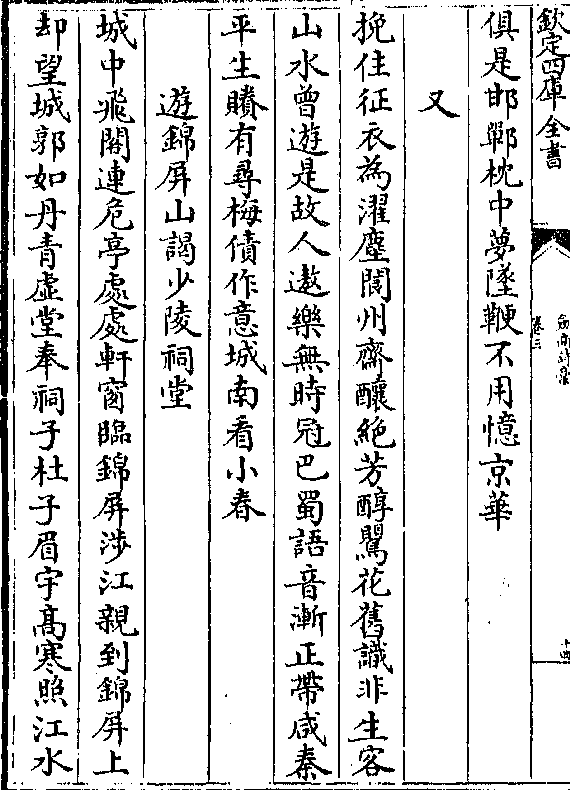 欽定四庫全書
劍南詩稾
卷三
十四
俱是邯鄲枕中夢墜鞭不用憶京華
又
挽住征衣為濯塵閬州齋釀絶芳醇鶯花舊識非生客
山水曾遊是故人遨樂無時冠巴蜀語音漸正帶咸秦
平生賸有尋梅債作意城南看小春
遊錦屏山謁少陵祠堂
城中飛閣連危亭處處軒窗臨錦屏涉江親到錦屏上
却望城郭如丹青虛堂奉祠子杜子眉宇高寒照江水